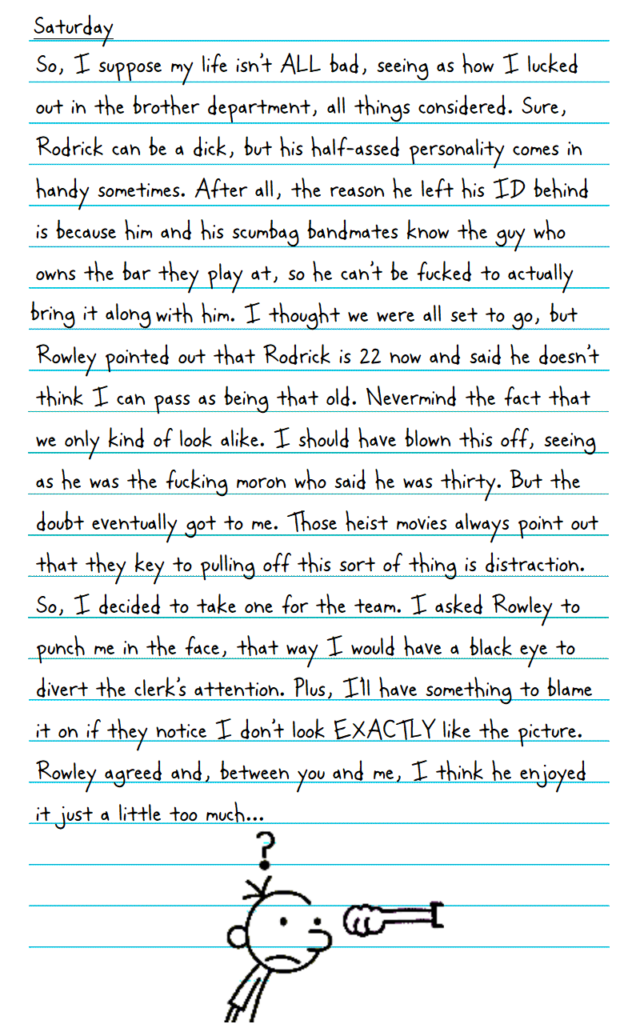 Saturday
So, I suppose my life isn't ALL bad, seeing as how I lucked
out in the brother department, all things considered. Sure,
Rodrick can be a dick, but his half-assed personality comes in
handy sometimes. After all, the reason he left his ID behind
is because him and his scumbag bandmates know the guy who
owns the bar they play at, so he can't be fucked to actually
bring it along with him. I thought we were all set to go, but
Rowley pointed out that Rodrick is 22 now and said he doesn't
think I can pass as being that old. Nevermind the fact that
we only kind of look alike. I should have blown this off, seeing
as he was the fucking moron who said he was thirty. But the
doubt eventually got to me. Those heist movies always point out
that they key to pulling off this sort of thing is distraction.
So, I decided to take one for the team. I asked Rowley to
punch me in the face, that way I would have a black eye to
divert the clerk's attention. Plus, I'll have something to blame
it on if they notice I don't look EXACTLY like the picture.
Rowley agreed and, between you and me, I think he enjoyed
it just a little too much...
?